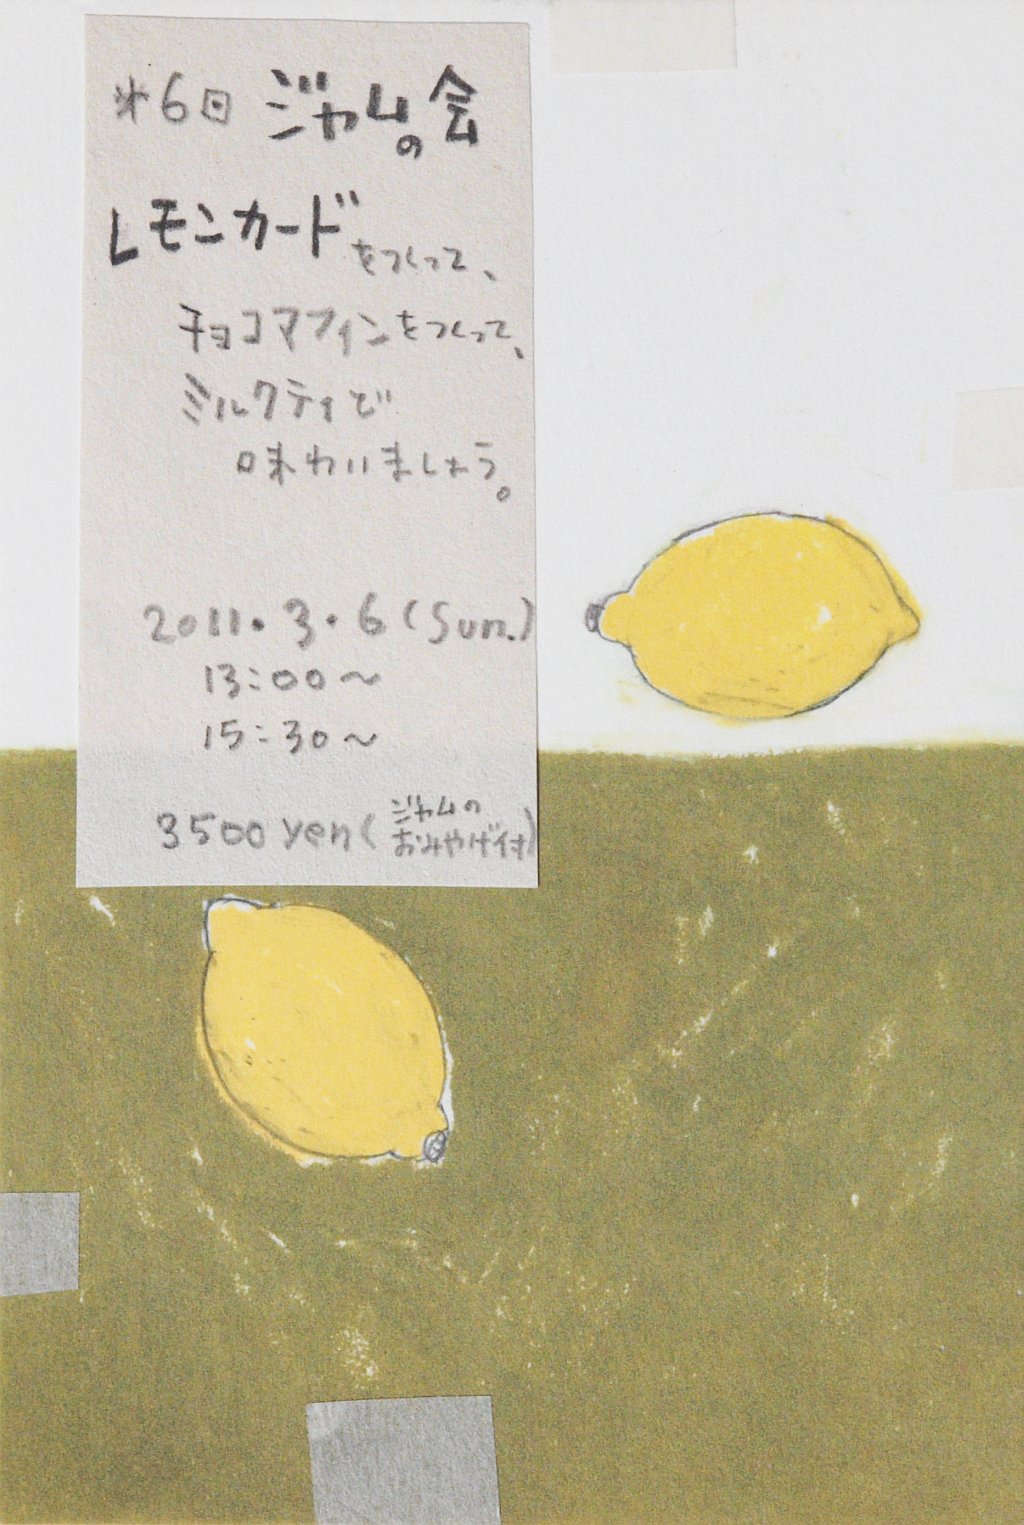 *6日 ジャムの会
レモンカードをつくって、
チョコマフィンをつくって、
ミルクティで
味わいましょう。
2011・3・6(Sun.)
13:00〜
15:30〜
3500yen(ジャムの
おみやげ付)